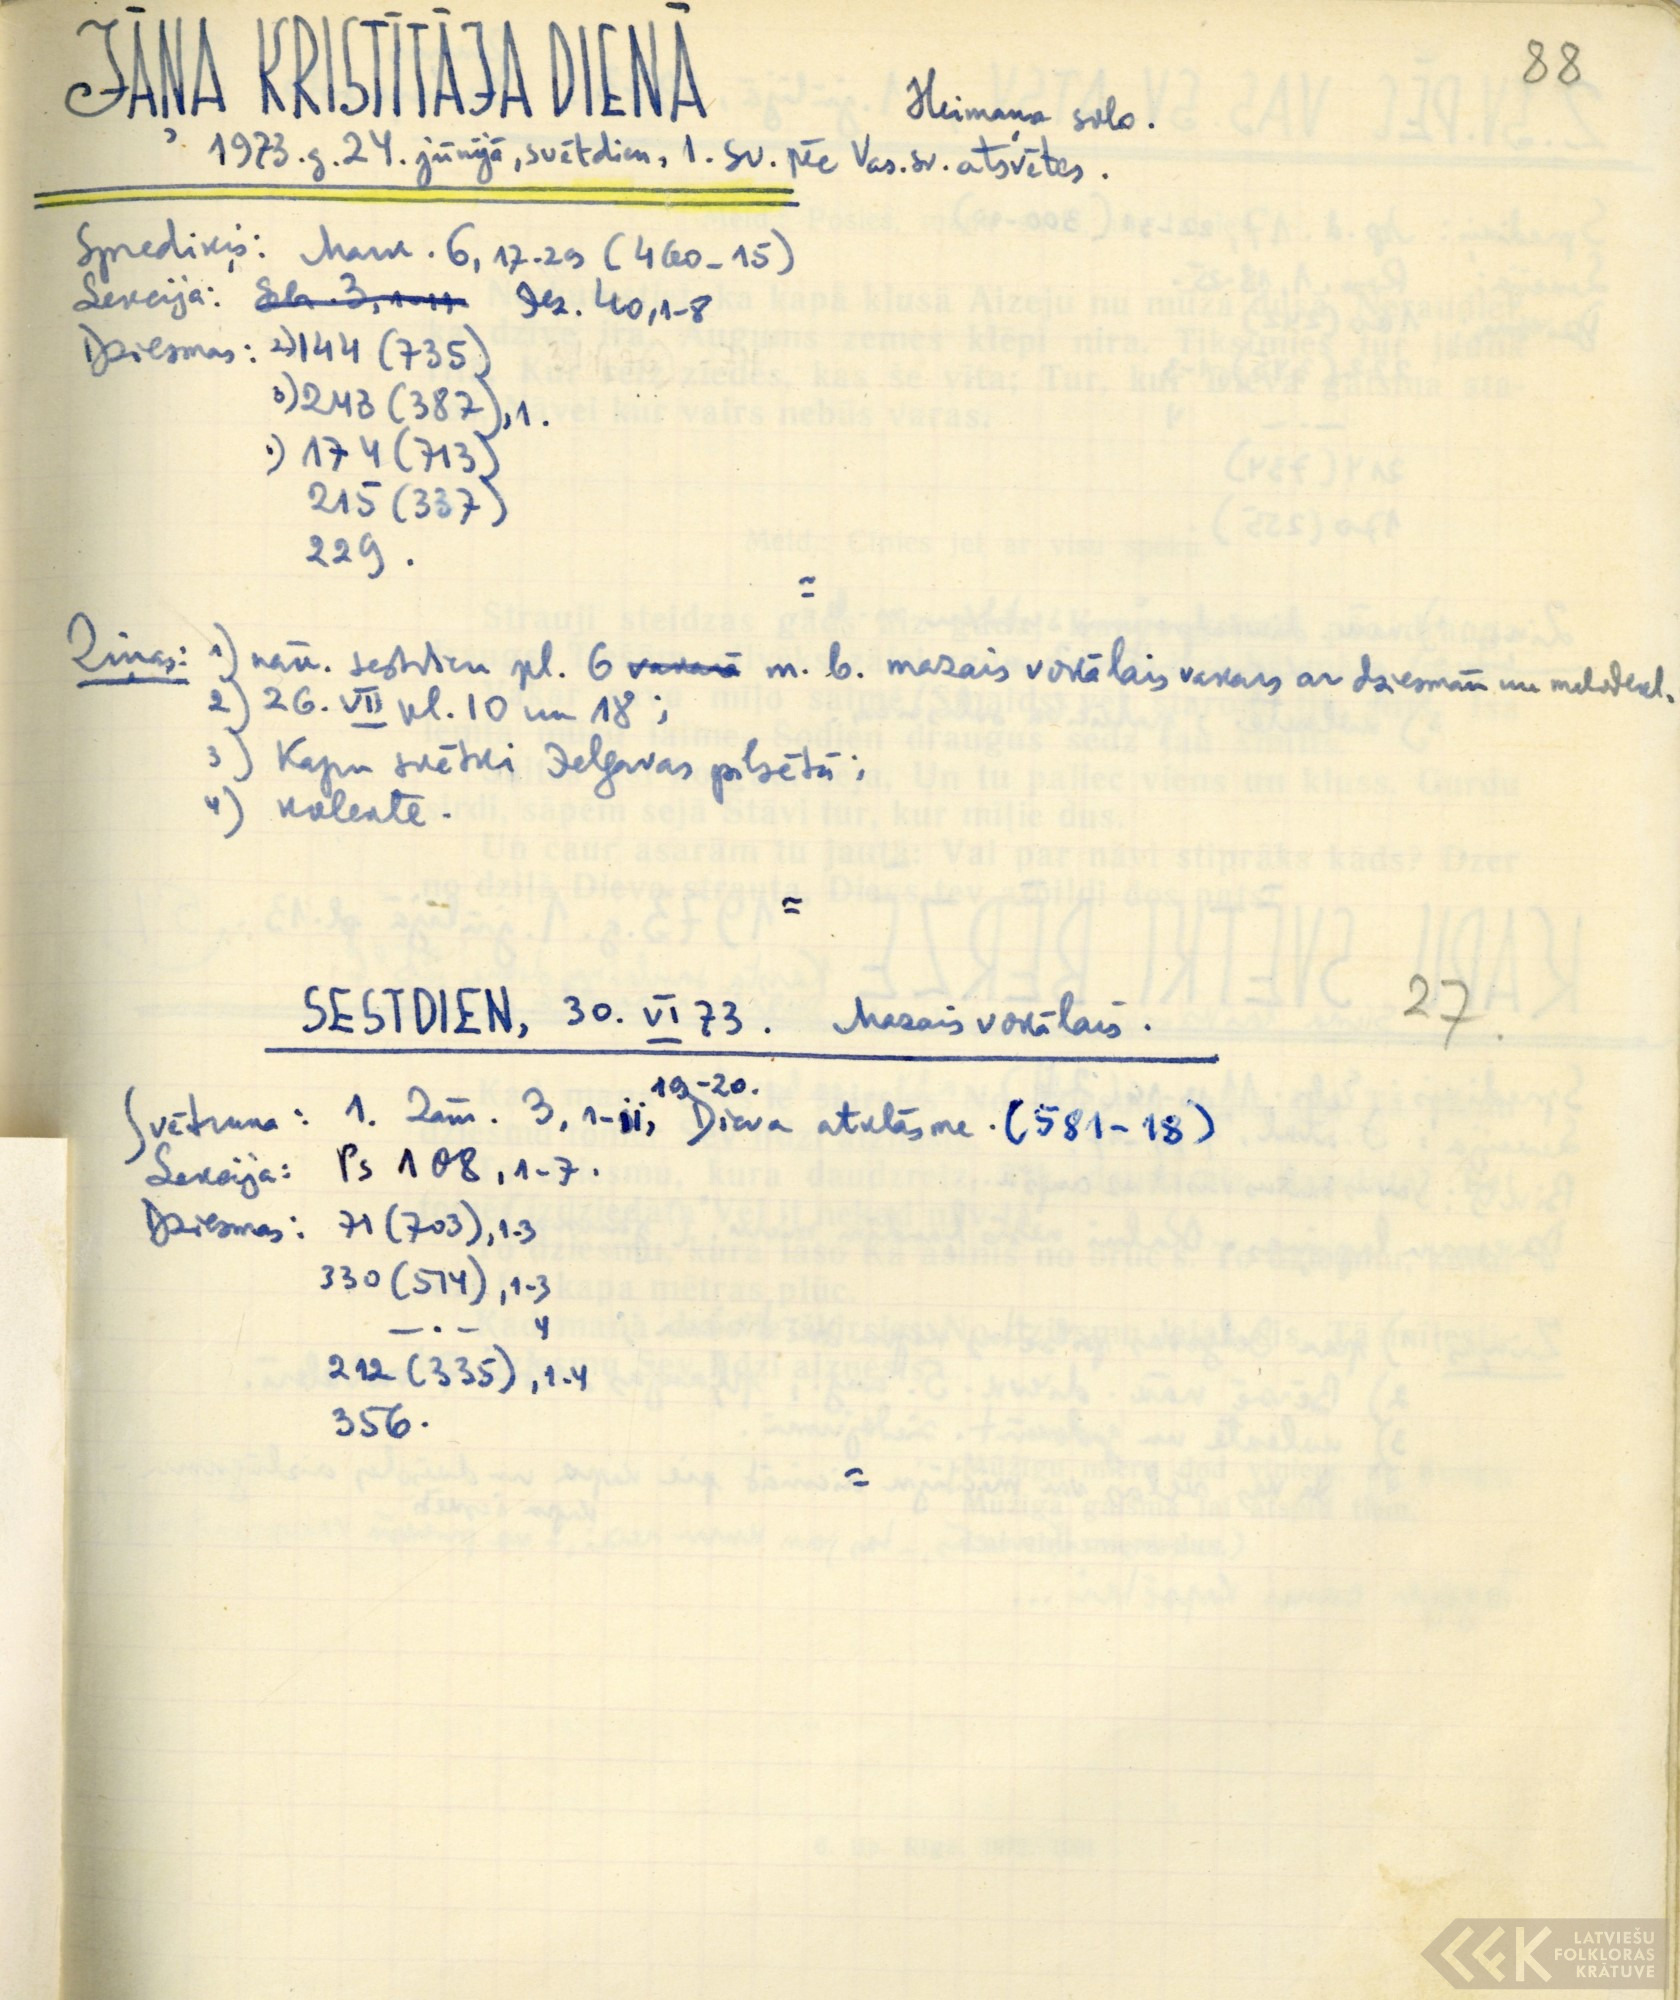 88
JĀNA KRISTĪTĀJA DIENĀ
Heimaņa solo.
1973.g.24.jūnijā, svētdien, 1. sv. pēc Vas.sv. atsvētes.
Sprediķis: Mark. 6, 17-29 (460-15)
Lekcija: Jes. 40, 1-8
Dziesmas: 2) 144 (735)
3) 243 (387), 1.
1) 174 (713)
215 (337)
229.
=
Ziņas: 1) nāk. sestdien pl. 6 vakarā m. b. mazais vokālais vakars ar dziesmām un melodekl.
2) 26. VII pl. 10 un 18;
3) Kapu svētki Jelgavas pilsētā;
4) kolekte.
=
SESTDIEN, 30. VI 73. Mazais vokālais.
27.
19-20.
Svētruna: 1. Sam. 3, 1-11; Dieva atklāsme. (581-18)
Lekcija: Ps 108, 1-7.
Dziesmas: 71 (703), 1-3
330 (514), 1-3
— . — 4
212 (335), 1-4
356.
=
LATVIEŠU
FOLKLORAS
KRĀTUVE